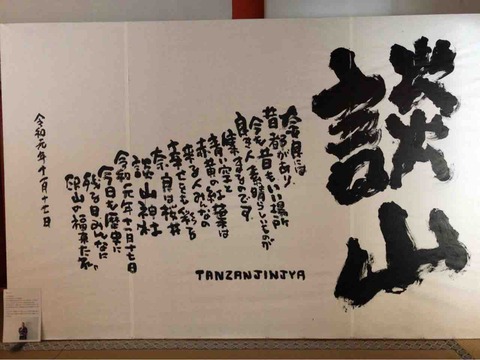 談山
奈良には
昔都があり、
今も昔もいい場所
良き人、素晴らしいものが
集まるのです。
青い空と葉は
赤黄の
来る人みんなの
幸せ彩る
奈良は桜井
談山神社
令和元年十一月十七日
今日も歴史に
残る日みんなに
沢山の福来たれ。
TANZANJINJYA
令和元年十一月十七日